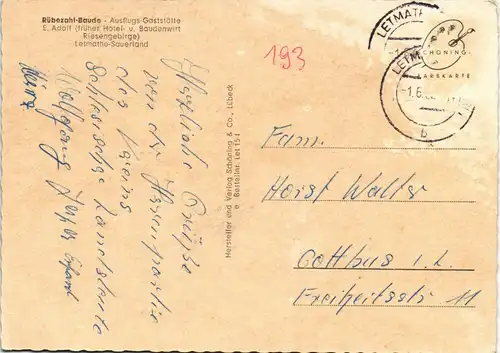 Rübezahl-Baude · Ausflugs-Gaststätte
E. Adolf (früher Hotel- u. Baudenwirt
Riesengebirge)
Letmathe-Sauerland
Herzliche Grüße
von der Herrenpartie
des Vereins
Schlesische Landsleute
Wolfgang
Hersteller und Verlag Schöning & Co., Lübeck
Bestellnr. Let 15
193
LETMATHE
SCHÖNING
b
Fam.
Horst Walter
Cottbus i. L.
Freiheitsstr 11